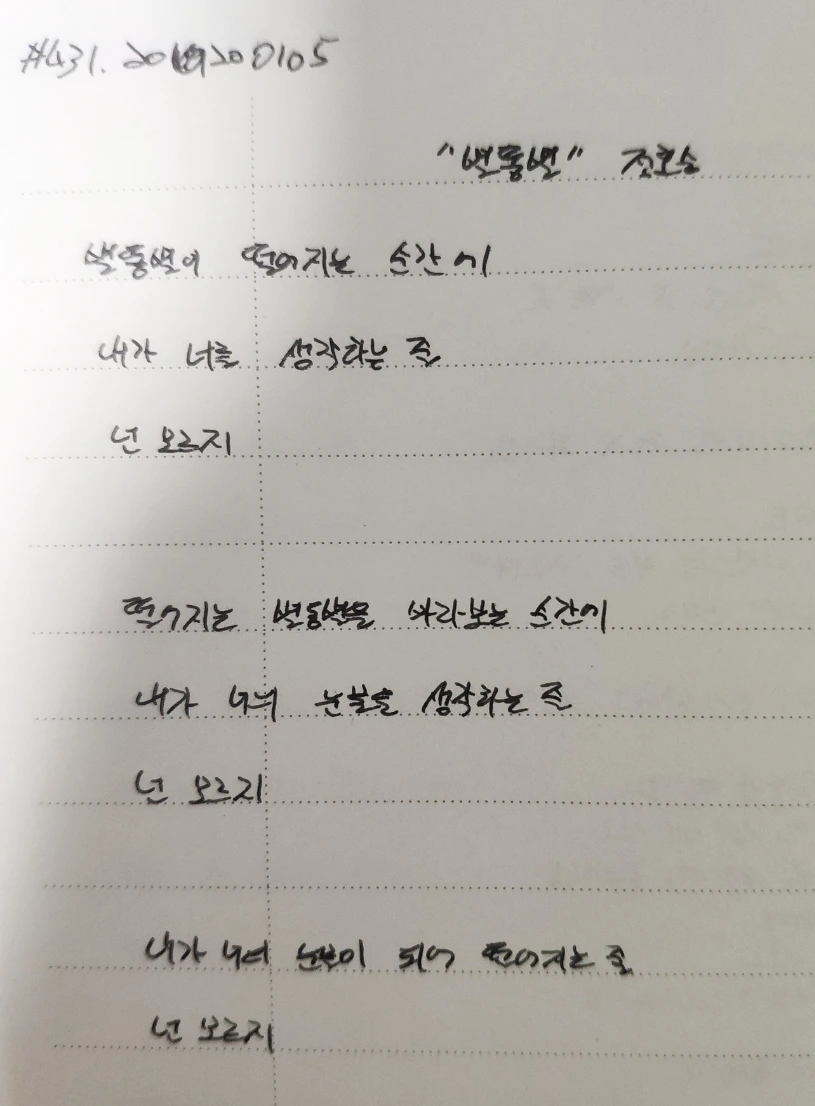 #431. 20200105
"별똥별" 정호승
별똥별이 떨어지는 순간에
내가 너를 생각하는 줄
넌 모르지
떨어지는 별똥별을 바라보는 순간에
내가 너의 눈물을 생각하는 줄
넌 모르지
내가 너의 눈물이 되어 떨어지는 줄
넌 모르지